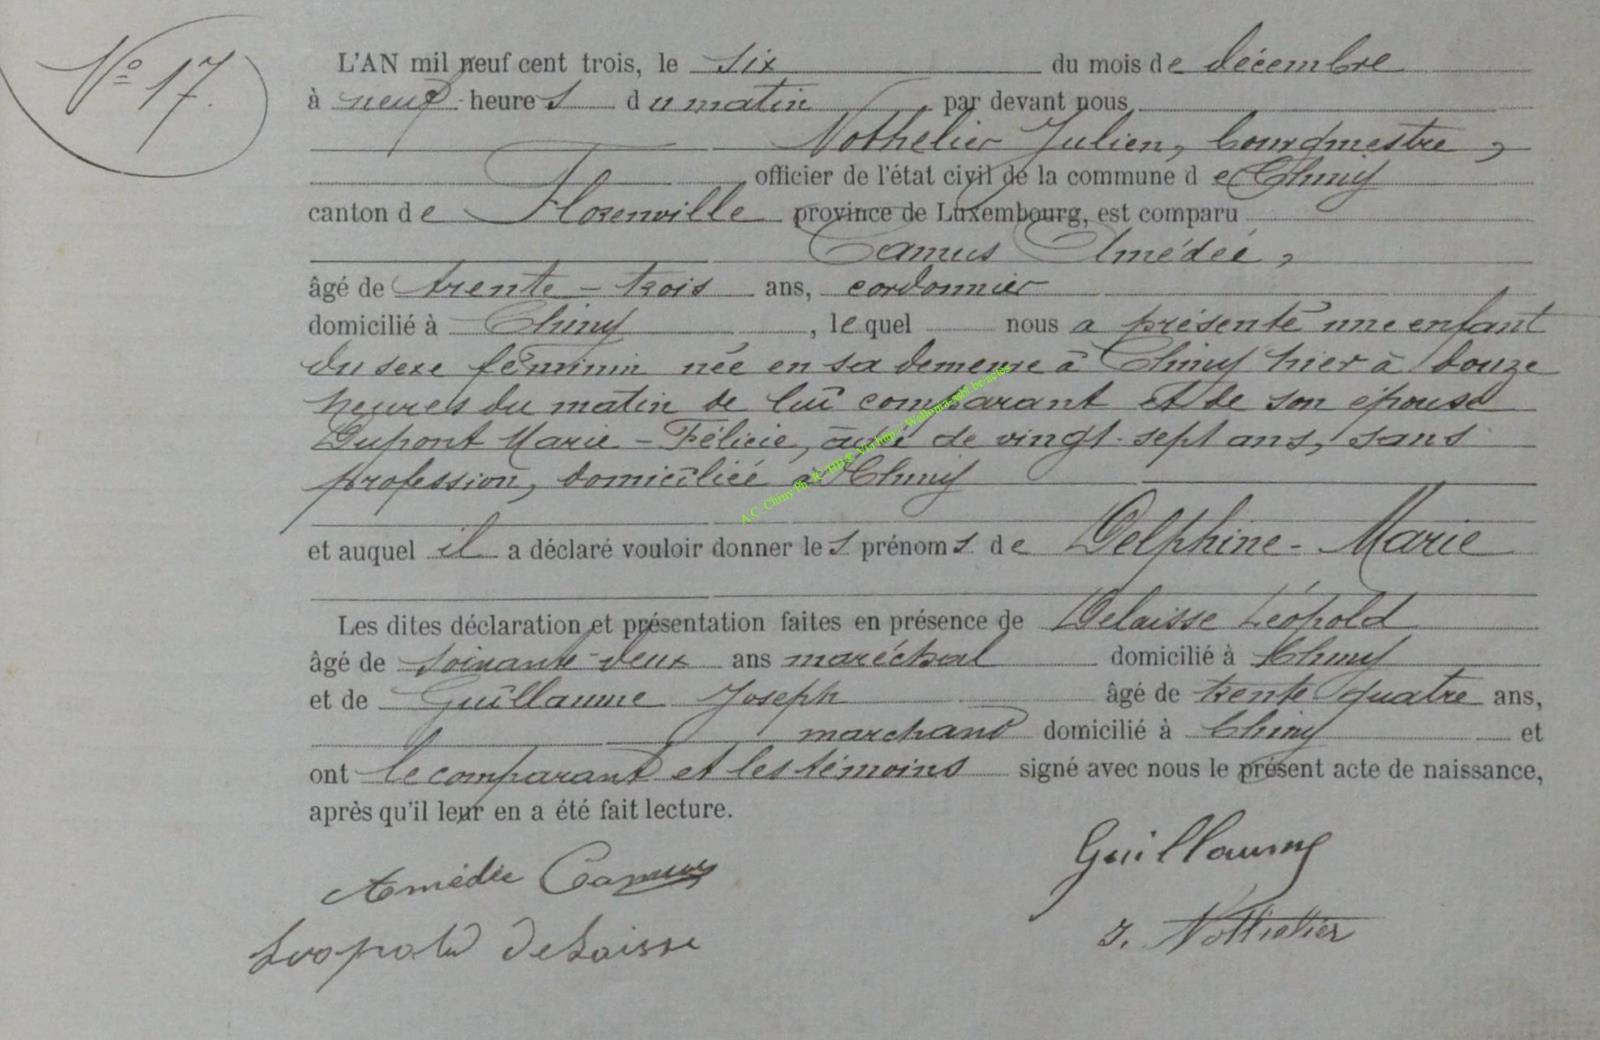 N° 17.
L'AN mil neuf cent trois, le six du mois de décembre
à neuf heures du matin par devant nous
Nothelier Julien, bourgmestre,
officier de l'état civil de la commune de Chiny
canton de Florenville province de Luxembourg, est comparu
Camus Amédée,
âgé de trente-trois ans, cordonnier
domicilié à Chiny, lequel nous a présenté une enfant
du sexe féminin née en sa demeure à Chiny hier à douze
heures du matin de lui comparant et de son épouse
Dupont Marie-Félicie, âgée de vingt-sept ans, sans
profession, domiciliée à Chiny
et auquel il a déclaré vouloir donner les prénoms de Delphine-Marie
Les dites déclaration et présentation faites en présence de Delaisse Léopold
âgé de soixante-deux ans maréchal domicilié à Chiny
et de Guillaume Joseph âgé de trente quatre ans,
marchand domicilié à Chiny et
ont le comparant et les témoins signé avec nous le présent acte de naissance,
après qu'il leur en a été fait lecture.
Amédée Camus
Guillaume
Léopold Delaisse
J. Nothelier
A.C. Chiny Ph.